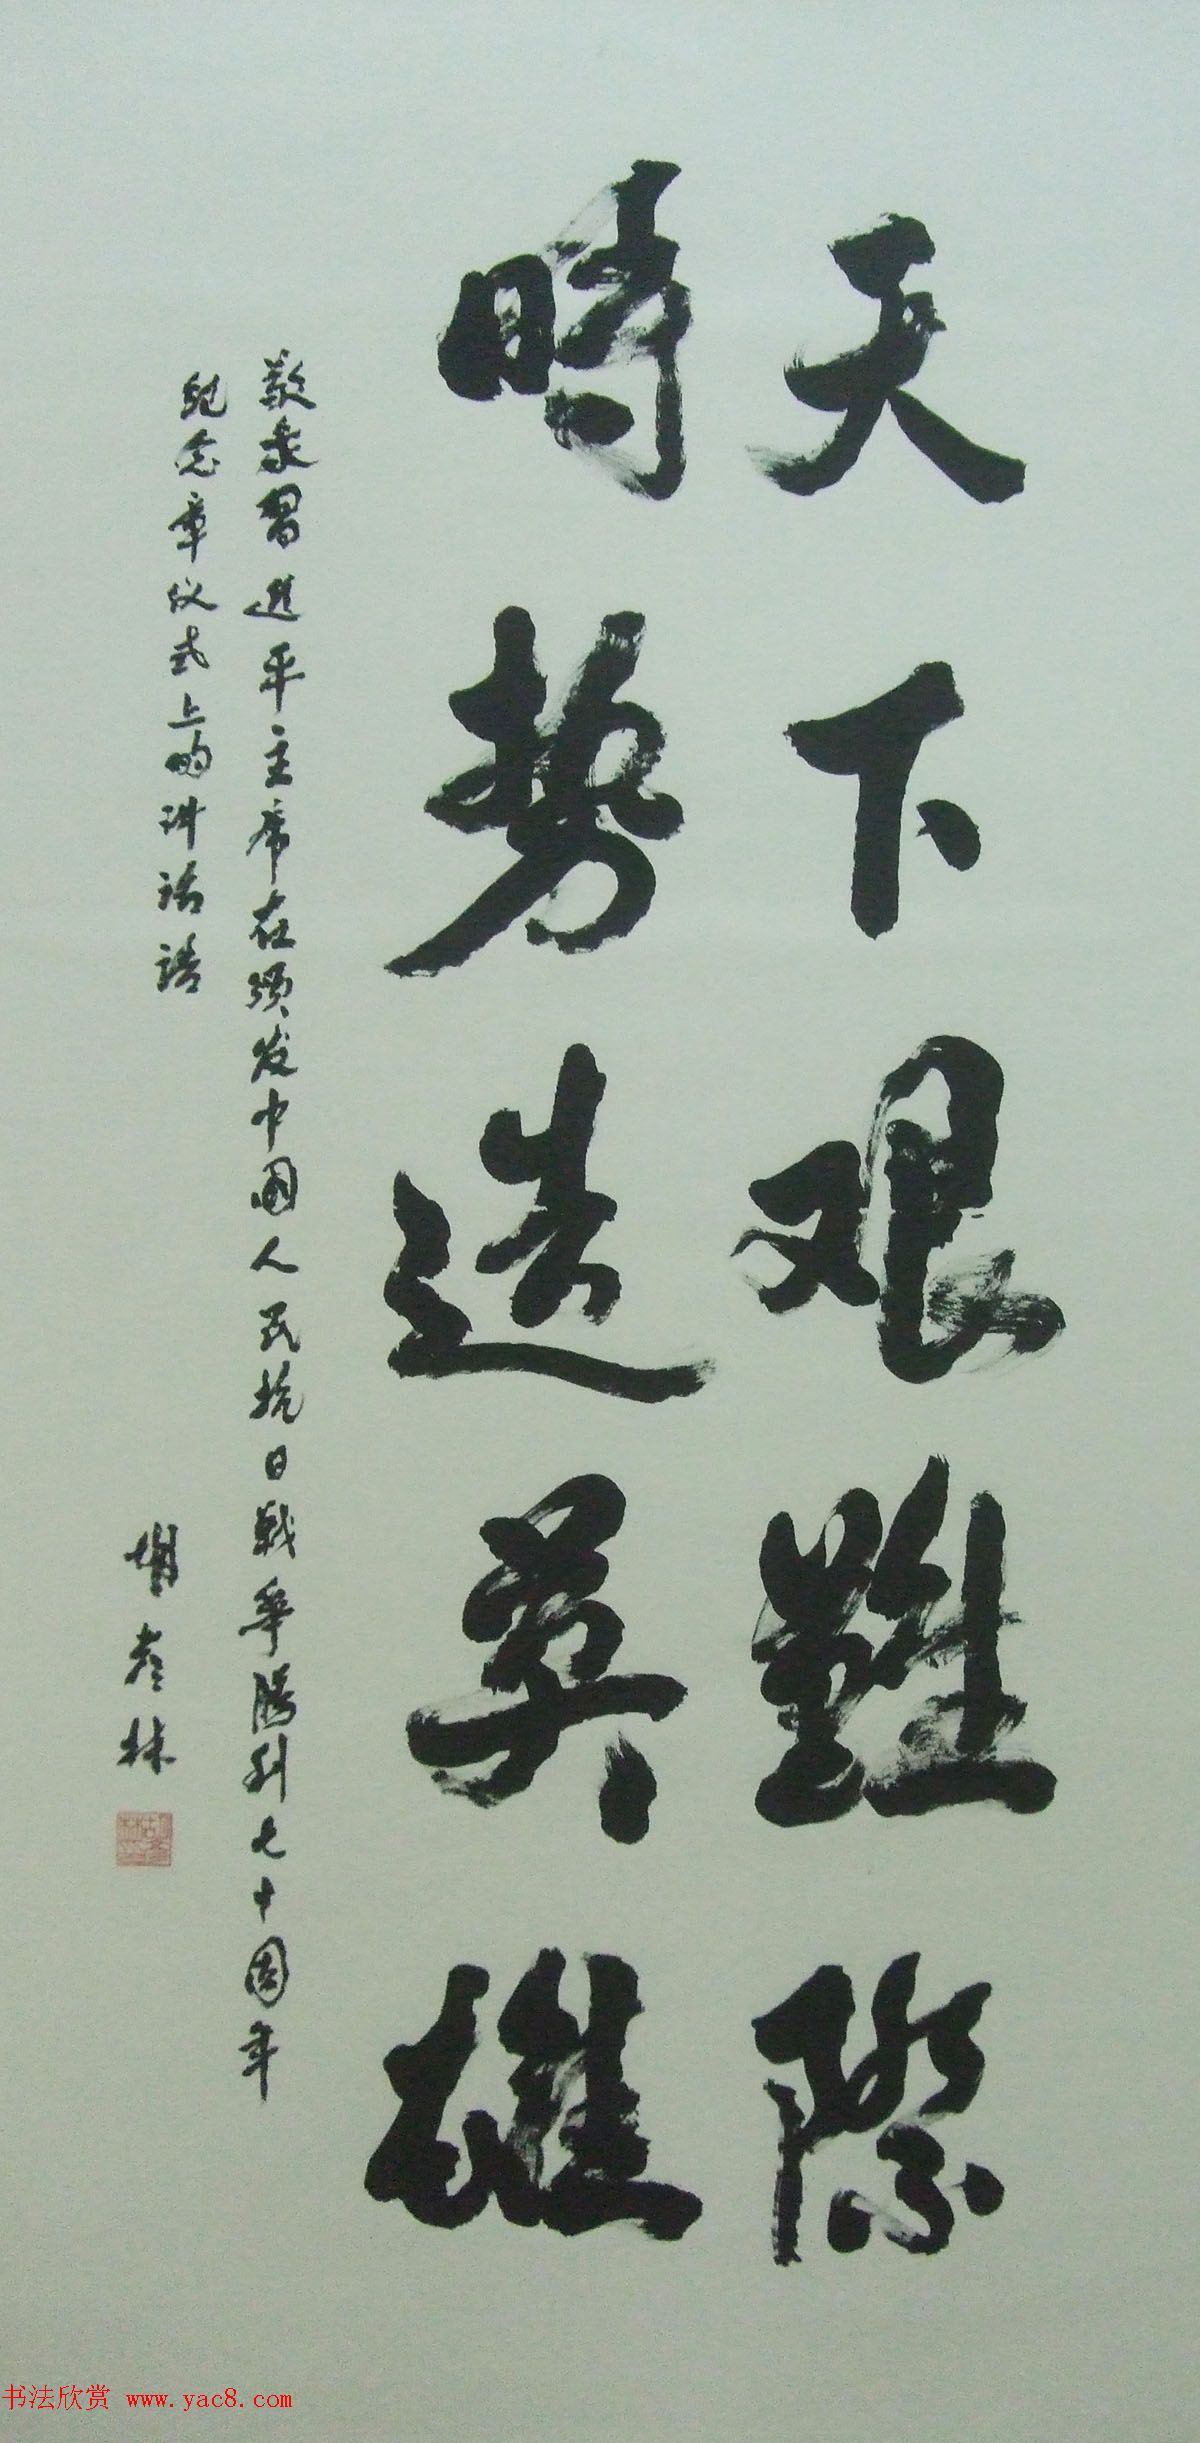 天下艰難際
時势造英雄
敬录習進平主席在颁发中国人民抗日戰争勝利七十周年
纪念章仪式上的讲话语
胡彦林
书法欣赏 www.yac8.com